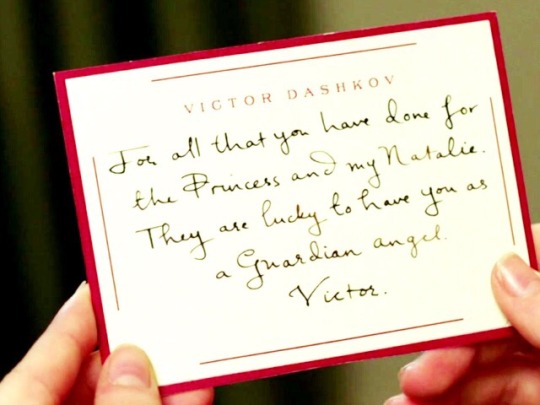 VICTOR DASHKOV
For all that you have done for
the Princess and my Natalie.
They are lucky to have you as
a Guardian angel.
Victor.